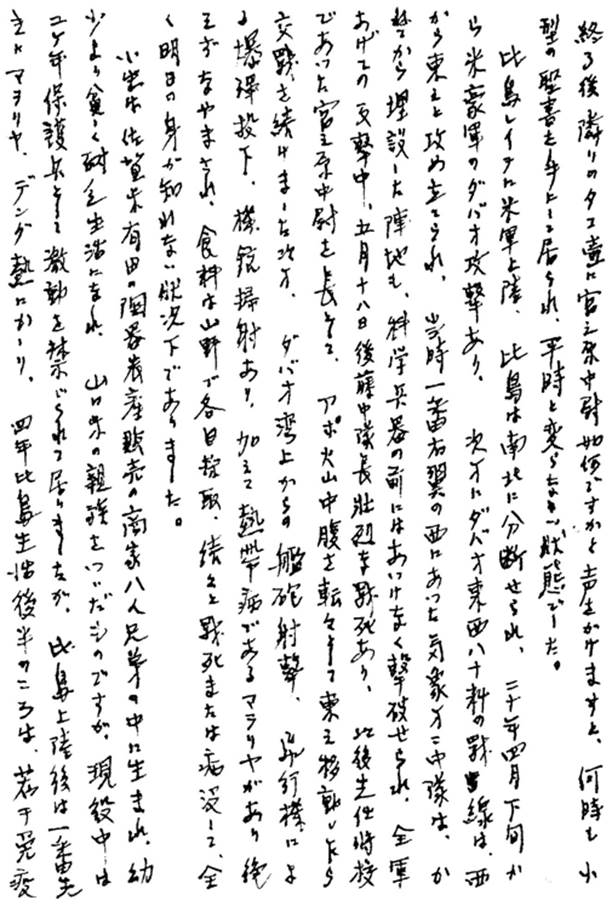 終る後隣りのタコ壺に宮之原中尉如何ですかと声をかけますと、何時も小
型の聖書を手にして居られ、平時と変らない状態でした。
比島レイテに米軍上陸、比島は南北に分断せられ、二十年四月下旬か
ら米豪軍のダバオ攻撃あり。次々にダバオ東西八十粁の戦線は、西
から東えと攻め立てられ、当時一番右翼の西にあった気象方二中隊は、か
ねてから埋設した陣地も、科学兵器の前にはあいけなく撃破せられ、全軍
あげての反撃中、五月十八日後藤中隊長壮烈な戦死あり、此後先任将校
であった宮之原中尉を長として、アポ火山中腹を転々として東え移動しながら
交戦を続けました次々、ダバオ湾上からの艦砲射撃、飛行機によ
る爆弾投下、機銃掃射あり、加えて熱帯病であるマラリヤがあり絶
えずなやまされ、食料は山野で各自採取、続々と戦死または病没して、全
く明日の身が知れない状況下でありました。
小生は佐賀県有田の陶器卸産販売の商家八人兄弟の中に生まれ、幼
少より貧しく耐乏生活になれ、山口県の親族をついだものですが、現役中は
二ヶ年保護兵として激動を禁じられて居りましたが、比島上陸後は一番先
きにマラリヤ、デング熱にかゝり、四年比島生活後半のころは、若干免疫